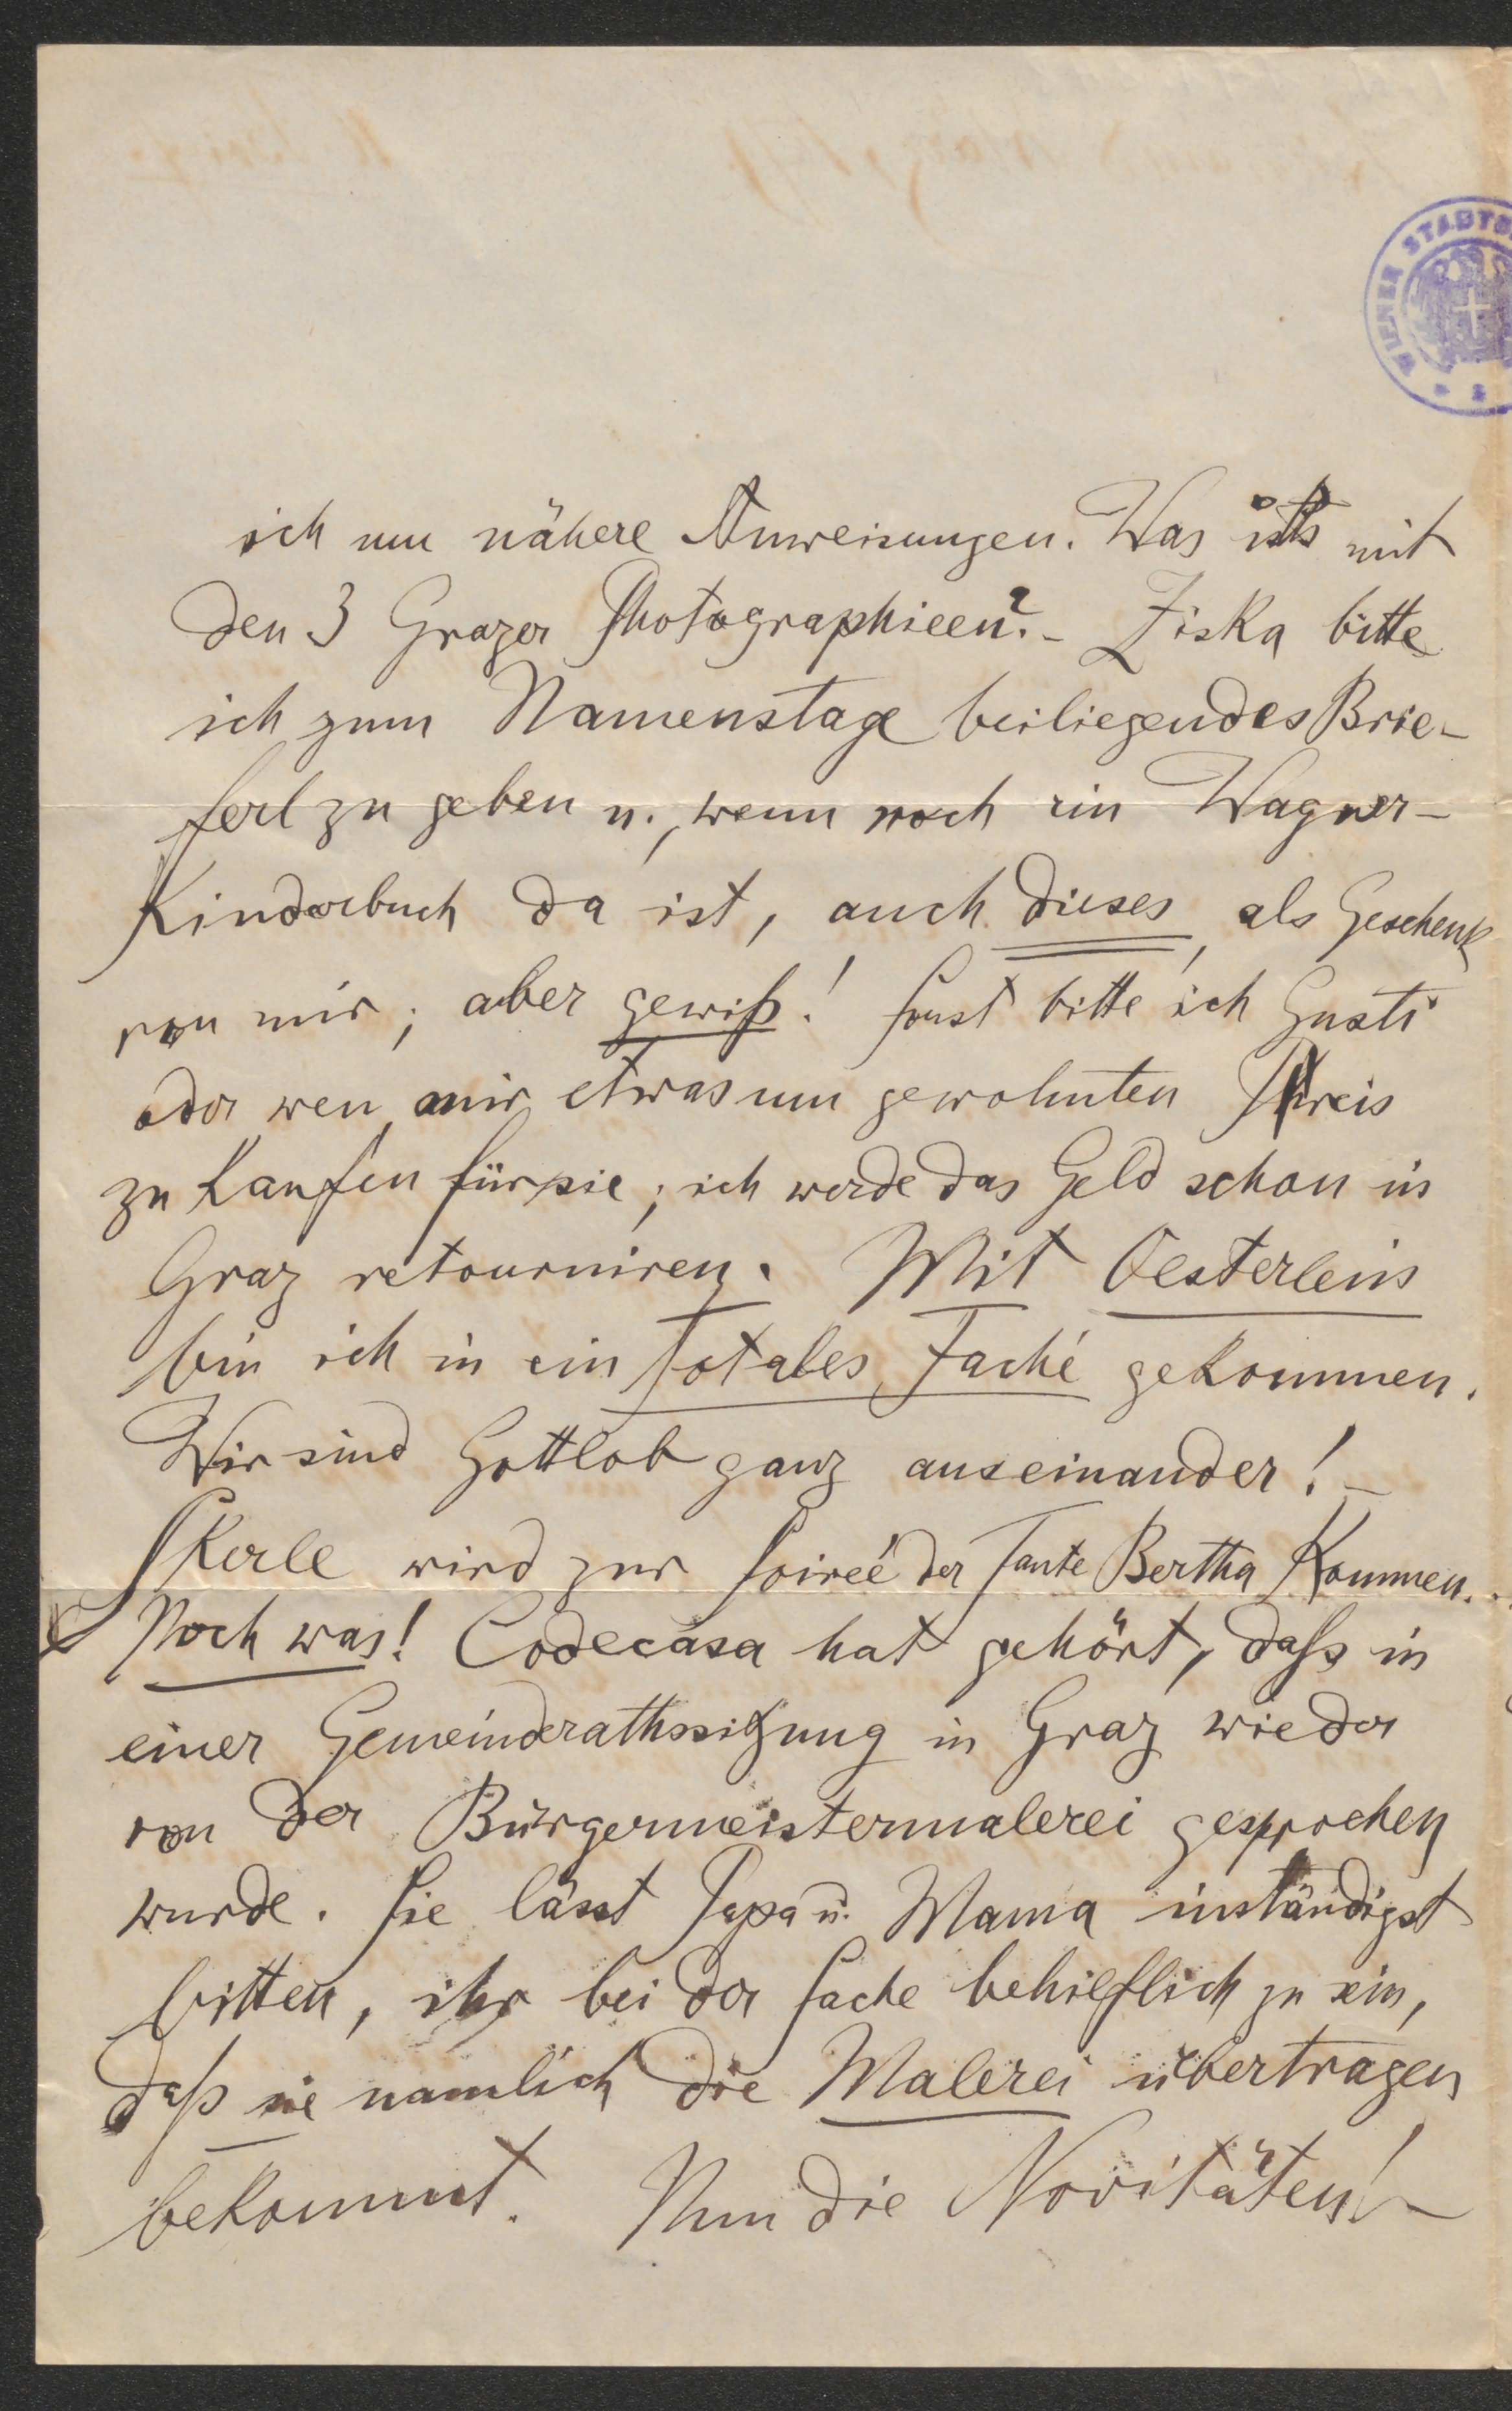 WIENER STADT
ich um nähere Anweisungen. Was ists mit
den 3 Grazer Photographieen? – Ziska bitte
ich zum Namenstage beiliegendes Brie-
ferl zu geben u., wenn noch ein Wagner-
Kinderbuch da ist, auch dieses, als Geschenk
von mir; aber gewiß! Sonst bitte ich Gusti
oder wen, mir etwas um gewohnten Preis
zu kaufen für sie; ich werde das Geld schon in
Graz retourniren. Mit Oesterleins
bin ich in ein totales Faché gekommen.
Wir sind Gottlob ganz auseinander! –
Skerle wird zur Soireé der Tante Bertha kommen.
Noch was! Codecasa hat gehört, dass in
einer Gemeinderathssitzung in Graz wieder
von der Bürgermeistermalerei gesprochen
wurde. Sie lässt Papa u. Mama inständigst
bitten, ihr bei der Sache behilflich zu sein,
daß sie namlich die Malerei übertragen
bekommt. Nun die Novitäten! –